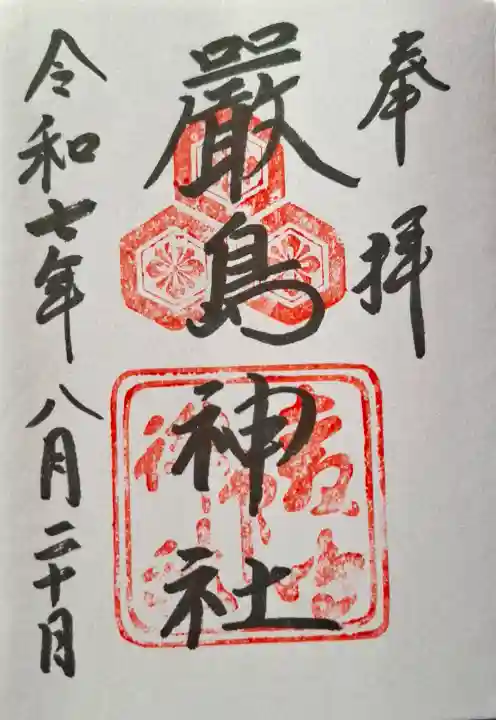 奉拝
厳島神社
令和七年八月二十月